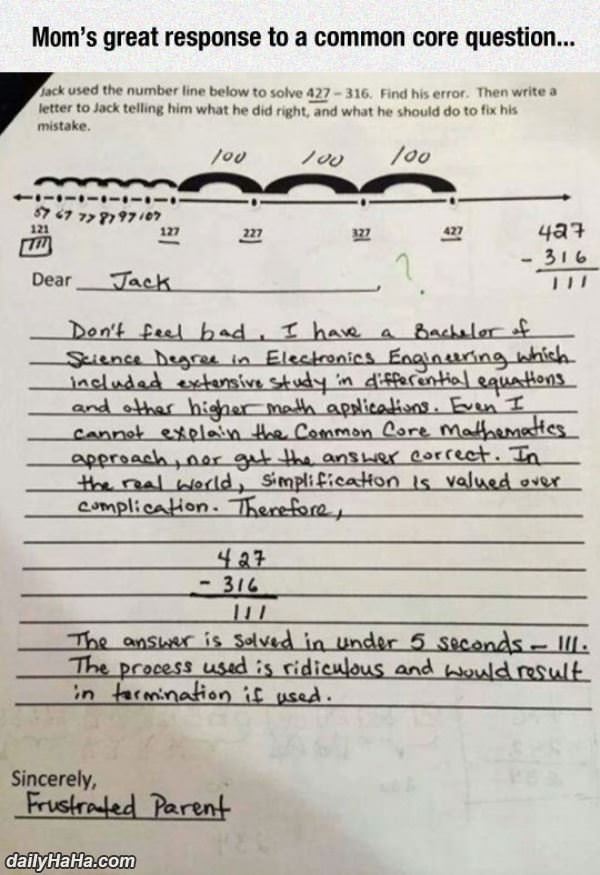 Mom's great response to a common core question...
Jack used the number line below to solve 427 – 316. Find his error. Then write a
letter to Jack telling him what he did right, and what he should do to fix his
mistake.
100 100 100
57 67 77 87 97 107
121 127 227 327 427
111
427
- 316
111
?
Dear Jack,
Don't feel bad. I have a Bachelor of
Science Degree in Electronics Engineering which
included extensive study in differential equations
and other higher math applications. Even I
cannot explain the Common Core Mathematics
approach, nor get the answer correct. In
the real world, simplification is valued over
complication. Therefore,
427
- 316
111
The answer is solved in under 5 seconds – 111.
The process used is ridiculous and would result
in termination if used.
Sincerely,
Frustrated Parent
dailyHaHa.com